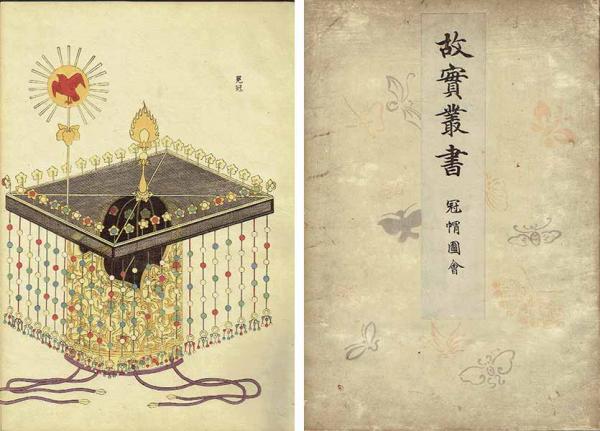 冕冠
故實叢書
冠帽圖會